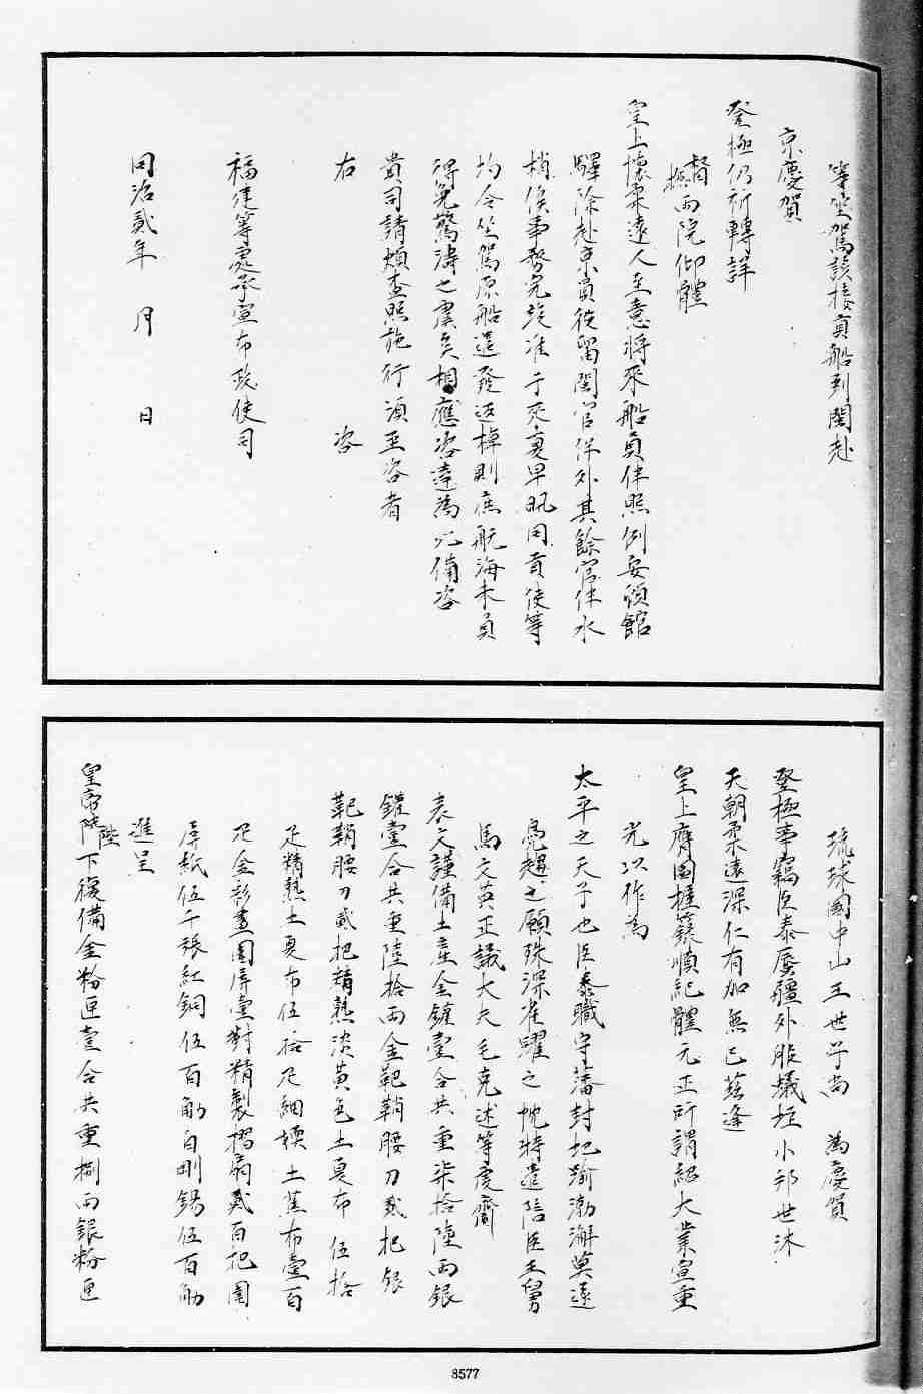 等坐駕該接貢船到閩赴
京慶賀
登極仍祈轉詳
督撫兩院仰體
皇上懷柔遠人至意將來船員伴照例安頓館
驛除赴京員役留閩官伴外其餘官伴水
梢俟事務完竣准于來夏早汛同貢使等
均令坐駕原船遣發返棹則庶航海末員
得免驚濤之虞矣相應咨達為此備咨
貴司請煩查照施行須至咨者
右咨
福建等處承宣布政使司
同治貳年 月 日
琉球國中山王世子尚 為慶賀
登極事竊臣泰蜃疆外服蟻垤小邦世沐
天朝柔遠深仁有加無已茲逢
皇上膺圖握籙順紀體元正所謂紹大業宣重
光以作為
太平之天子也臣泰職守藩封地踰渤澥莫遠
鳧趨之願殊深雀躍之忱特遣陪臣王舅
馬文英正議大夫毛克述等虔齎
表文謹備土產金鑵壹合共重柒拾陸兩銀
鑵壹合共重陸拾兩金靶鞘腰刀貳把銀
靶鞘腰刀貳把精熟淡黃色土夏布伍拾
疋精熟土夏布伍拾疋細嫩土蕉布壹百
疋金彩畫圍屏壹對精製摺扇貳百把圍
屏紙伍千張紅銅伍百觔白剛錫伍百觔
進呈
皇帝陛陛下復備金粉匣壹合共重捌兩銀粉匣
8577